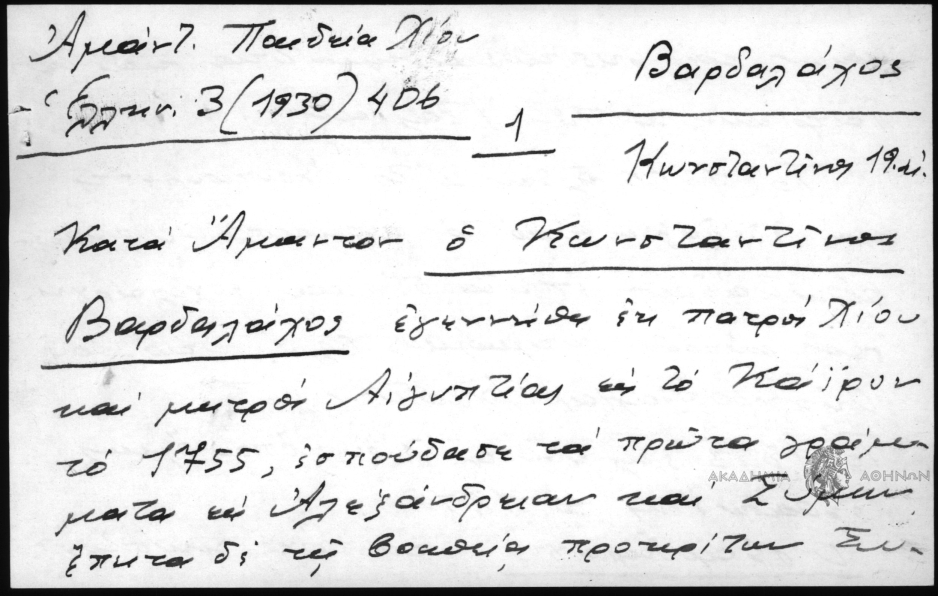 Ἀμάντ. Παιδεία Χίου
Ἑλλην. 3 (1930) 406
1
Βαρδαλάχος
Κωνσταντῖνος 19. αἰ.
Κατὰ Ἄμαντον ὁ Κωνσταντῖνος
Βαρδαλάχος ἐγεννήθη ἐκ πατρὸς Χίου
καὶ μητρὸς Αἰγυπτίας εἰς τὸ Κάϊρον
τὸ 1755, ἐσπούδασε τὰ πρῶτα γράμ-
ματα εἰς Ἀλεξάνδρειαν καὶ Σύμην
ἔπειτα δὲ τῇ βοηθείᾳ προκρίτων Συ-
ΑΚΑΔΗΜΙΑ ΑΘΗΝΩΝ